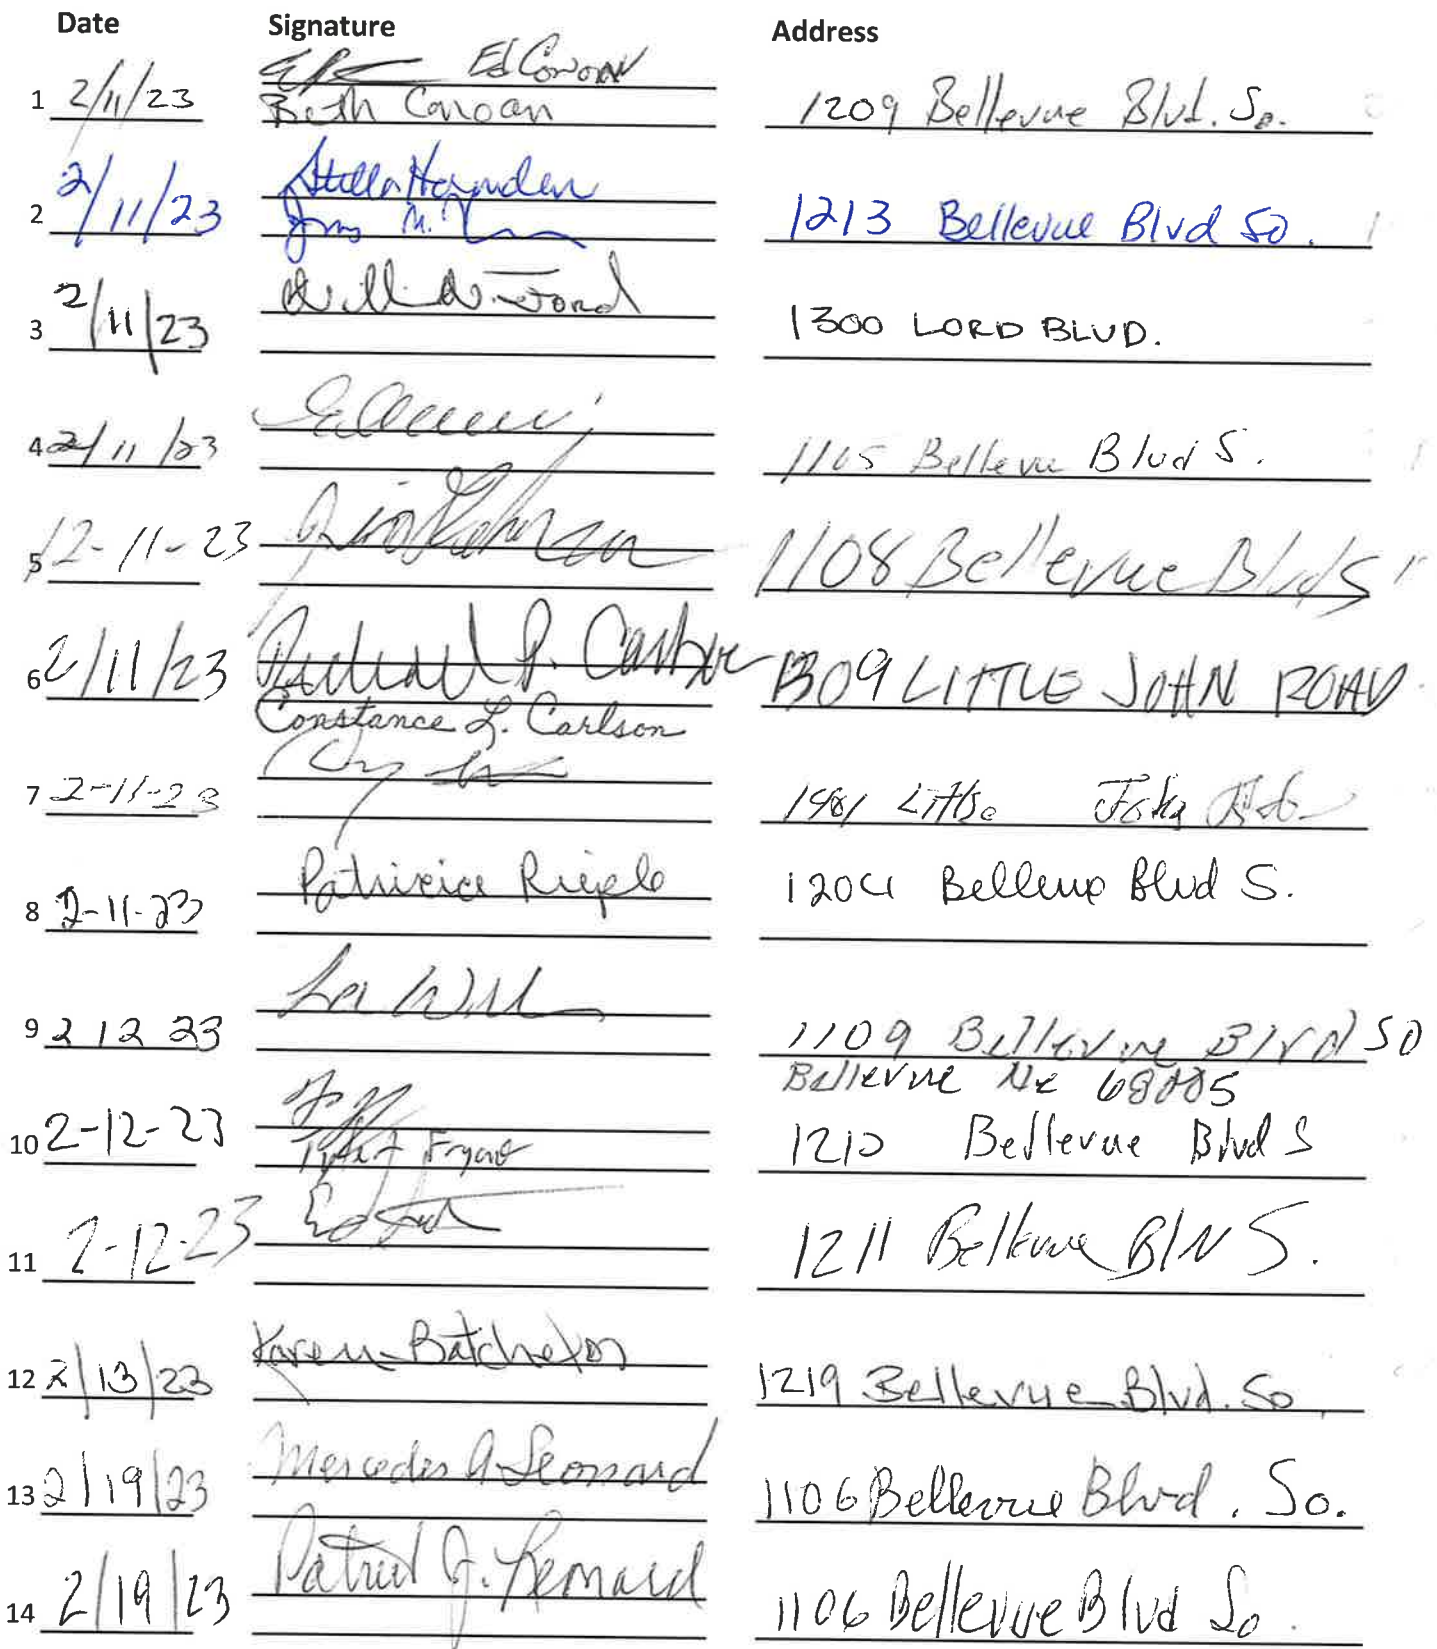 Date Signature Address
Ed Conoan
1 2/11/23 Beth Conoan 1209 Bellevue Blvd. So.
Stella Harnden
2 2/11/23 M. 1213 Bellevue Blvd So.
3 2/11/23 Ford 1300 LORD BLVD.
4 2/11/23 1105 Bellevue Blvd S.
5 2-11-23 1108 Bellevue Blvd S
6 2/11/23 1309 LITTLE JOHN ROAD
Constance L. Carlson
7 2-11-23 Little John
8 2-11-23 Patricia Rieple 1204 Bellevue Blvd S.
9 2 12 23 1109 Bellevue Blvd SO
Bellevue Ne 68005
10 2-12-23 1210 Bellevue Blvd S
11 2-12-23 1211 Bellevue Blvd S.
12 2/13/23 Karen Batchelor 1219 Bellevue Blvd. So.
13 2/19/23 Mercedes A Leonard 1106 Bellevue Blvd. So.
14 2/19/23 Patrick J. Leonard 1106 Bellevue Blvd So.